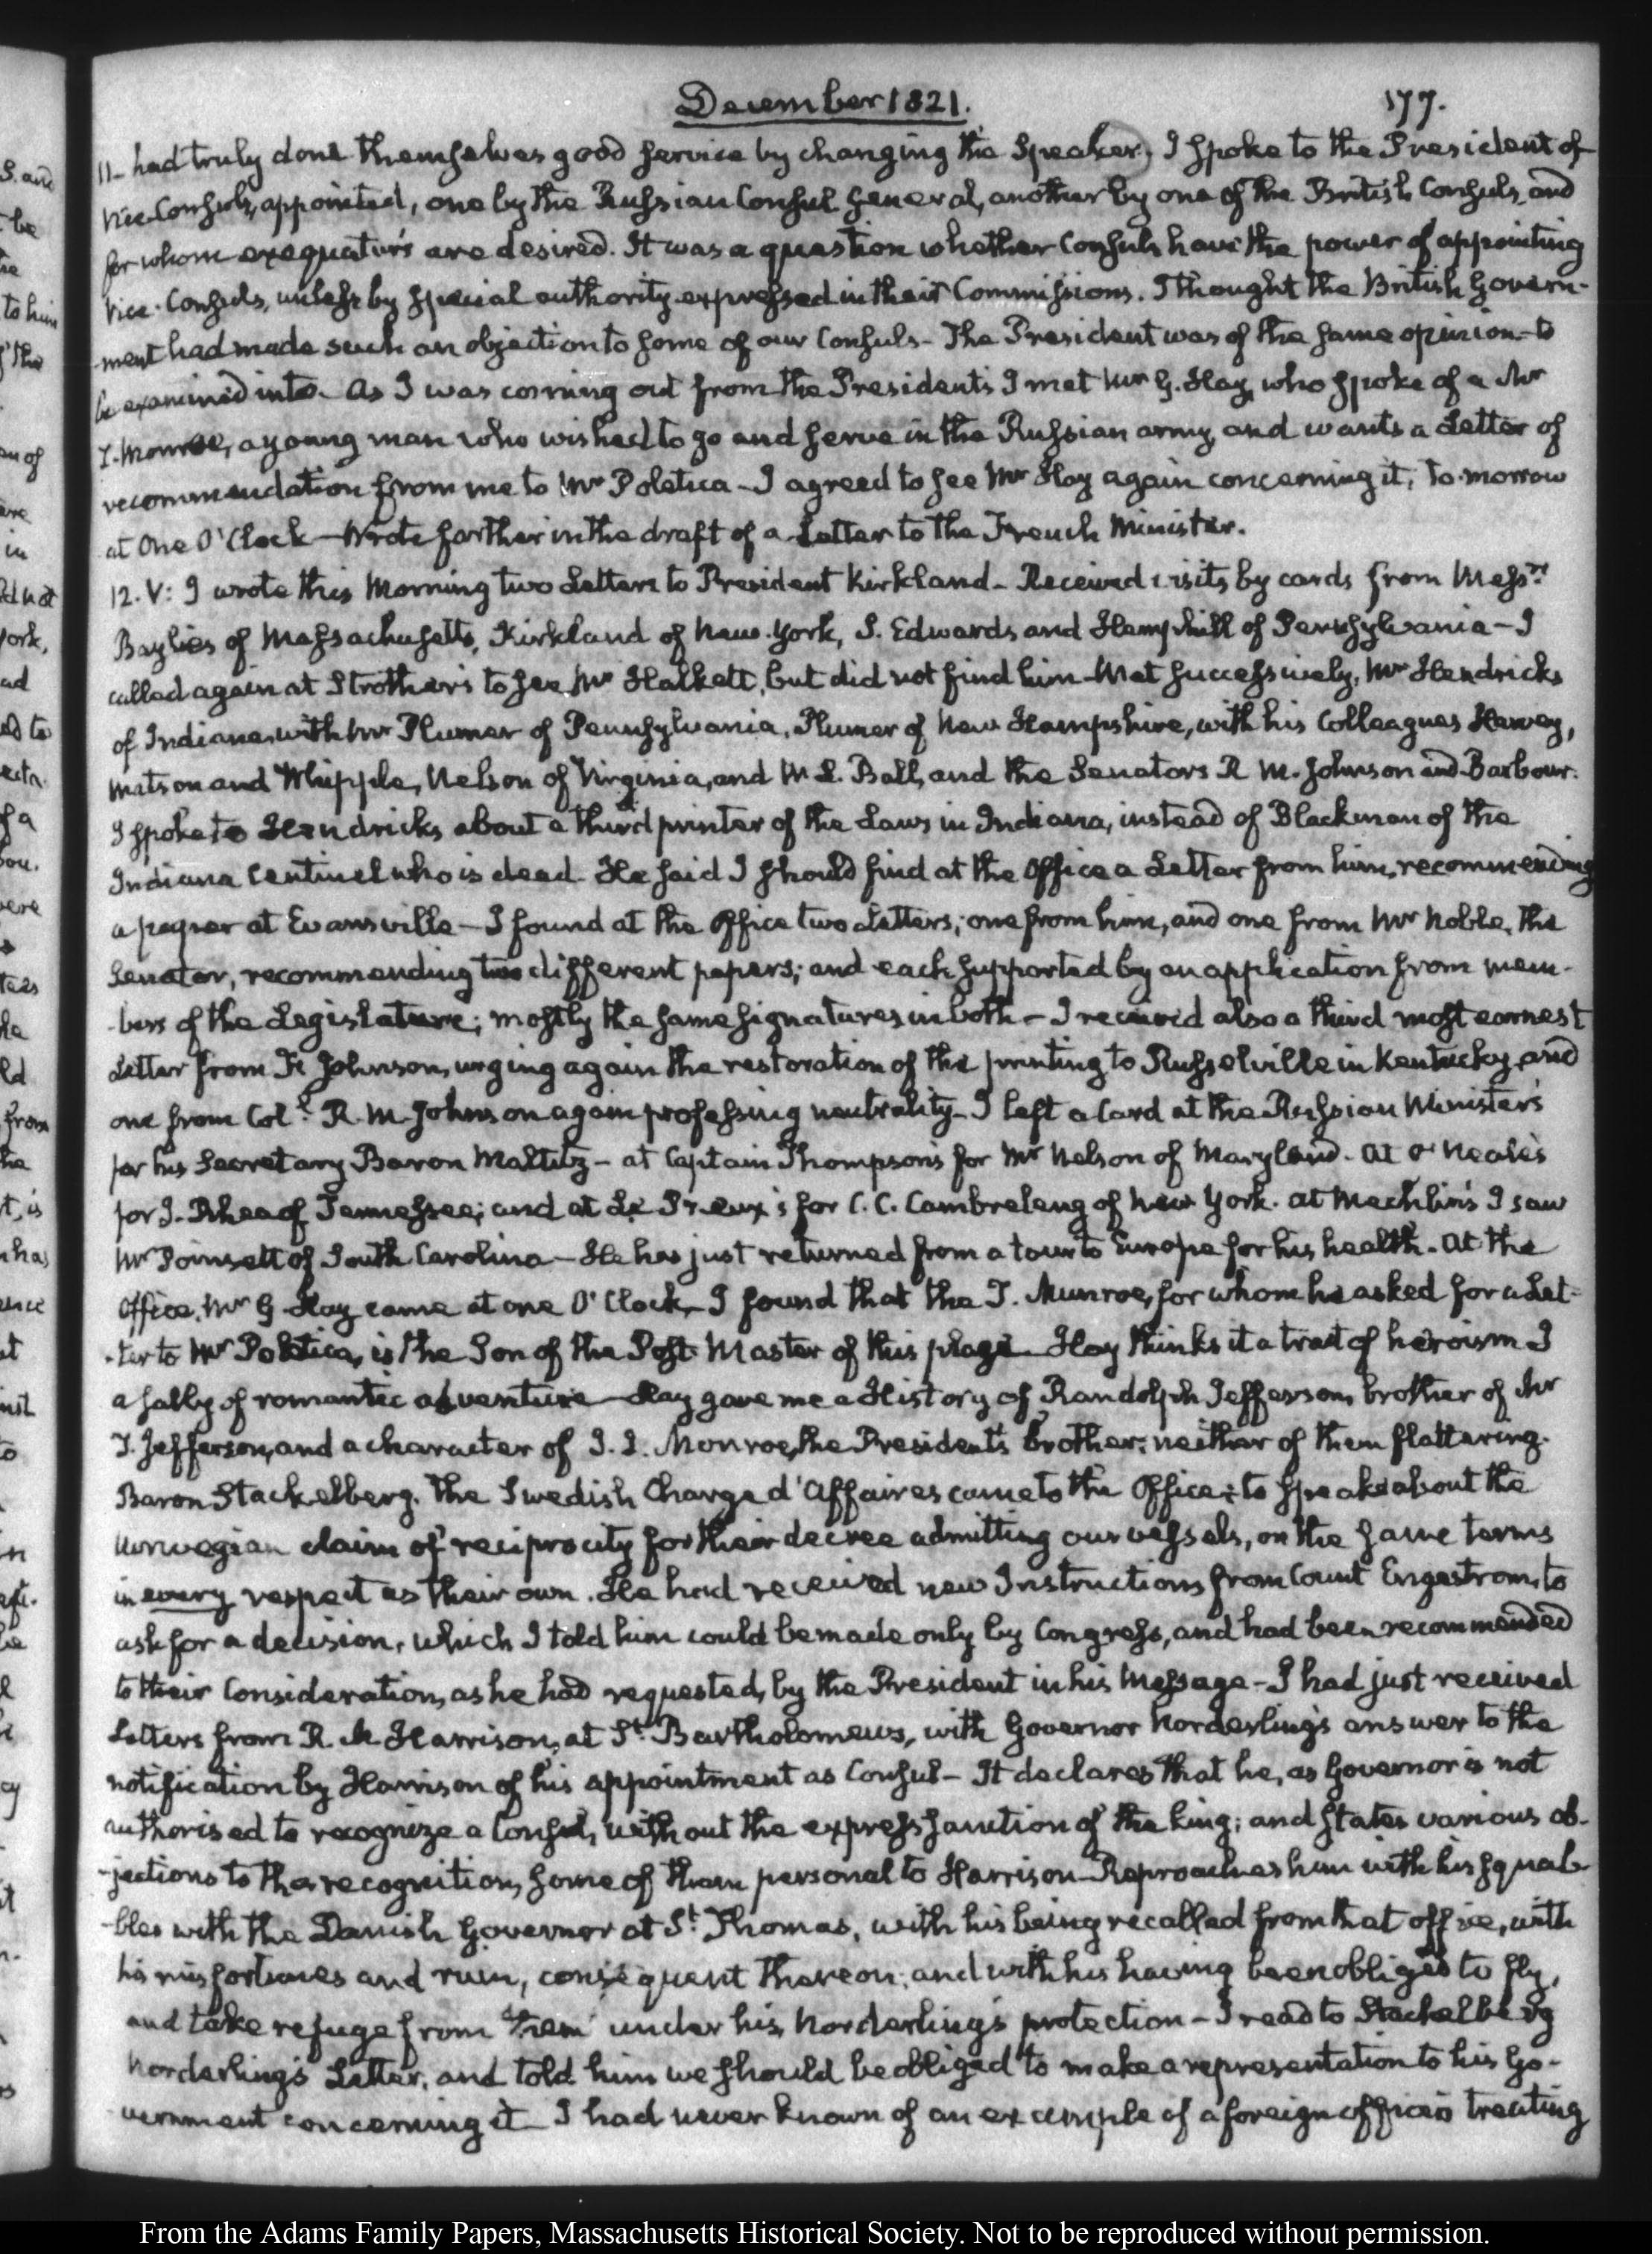 December 1821.
177.
11- had truly done themselves good service by changing the Speaker, I spoke to the President of
Vice-Consuls, appointed, one by the Russian Consul General, another by one of the British Consuls, and
for whom exequaturs are desired. It was a question whether Consuls have the power of appointing
Vice-Consuls, unless by special authority expressed in their Commissions. I thought the British Govern-
-ment had made such an objection to some of our Consuls- The President was of the same opinion- to
be examined into- As I was coming out from the President's I met Mr G. Hay, who spoke of a Mr
T. Monroe, a young man who wished to go and serve in the Russian army, and wants a Letter of
recommendation from me to Mr Poletica- I agreed to see Mr Hay again concerning it, to-morrow
at One O'Clock- Wrote farther in the draft of a Letter to the French Minister.
12. V: I wrote this Morning two Letters to President Kirkland- Received visits by cards from Messrs
Baylies of Massachusetts, Kirkland of New-York, S. Edwards and Hemphill of Pennsylvania- I
called again at Strother's to see Mr Halkett, but did not find him- Met successively, Mr Hendricks
of Indiana, with Mr Plumer of Pennsylvania, Plumer of New Hampshire, with his Colleagues Harvey,
Matson and Whipple, Nelson of Virginia, and W. L. Ball, and the Senators R M. Johnson and Barbour.
I spoke to Hendricks about a third printer of the Laws in Indiana, instead of Blackman of the
Indiana Centinel who is dead- He said I should find at the Office a Letter from him, recommending
a paper at Evansville- I found at the Office two Letters; one from him, and one from Mr Noble, the
Senator, recommending two different papers; and each supported by an application from mem-
-bers of the Legislature; mostly the same signatures in both- I received also a third most earnest
Letter from Fr Johnson, urging again the restoration of the printing to Russelville in Kentucky, and
one from Coll R. M. Johnson again professing neutrality- I left a Card at the Russian Minister's
for his Secretary Baron Maltitz- at Captain Thompson's for Mr Nelson of Maryland- at O Neale's
for J. Rhea of Tennessee; and at Le Preux's for C. C. Cambreleng of New York. at Mechlin's I saw
Mr Poinsett of South Carolina- He has just returned from a tour to Europe for his health- At the
Office, Mr G Hay came at one O'Clock- I found that the T. Munroe, for whom he asked for a Let-
-ter to Mr Poletica, is the Son of the Post-Master of this place- Hay thinks it a trait of heroism- I
a sally of romantic adventure- Hay gave me a History of Randolph Jefferson, brother of Mr
T. Jefferson, and a character of J. J. Monroe, the President's brother; neither of them flattering.
Baron Stackelberg. the Swedish Chargé d'Affaires came to the Office; to speak about the
Norwegian claim of reciprocity for their decree admitting our vessels, on the same terms
in every respect as their own. He had received new Instructions from Count Engestrom, to
ask for a decision, which I told him could be made only by Congress, and had been recommended
to their Consideration, as he had requested, by the President in his Message- I had just received
Letters from R. M Harrison, at St Bartholomews, with Governor Norderling's answer to the
notification by Harrison of his appointment as Consul- It declares that he, as Governor is not
authorised to recognize a Consul, without the express sanction of the king; and states various ob-
-jections to the recognition, some of them personal to Harrison- Reproaches him with his squab-
-bles with the Danish Governor at St Thomas, with his being recalled from that office, with
his misfortunes and ruin, consequent thereon; and with his having been obliged to fly,
and take refuge from them under his, Norderling's protection- I read to Stackelberg
Norderling's Letter, and told him we should be obliged to make a representation to his Go-
-vernment concerning it- I had never known of an example of a foreign officer's treating
From the Adams Family Papers, Massachusetts Historical Society. Not to be reproduced without permission.